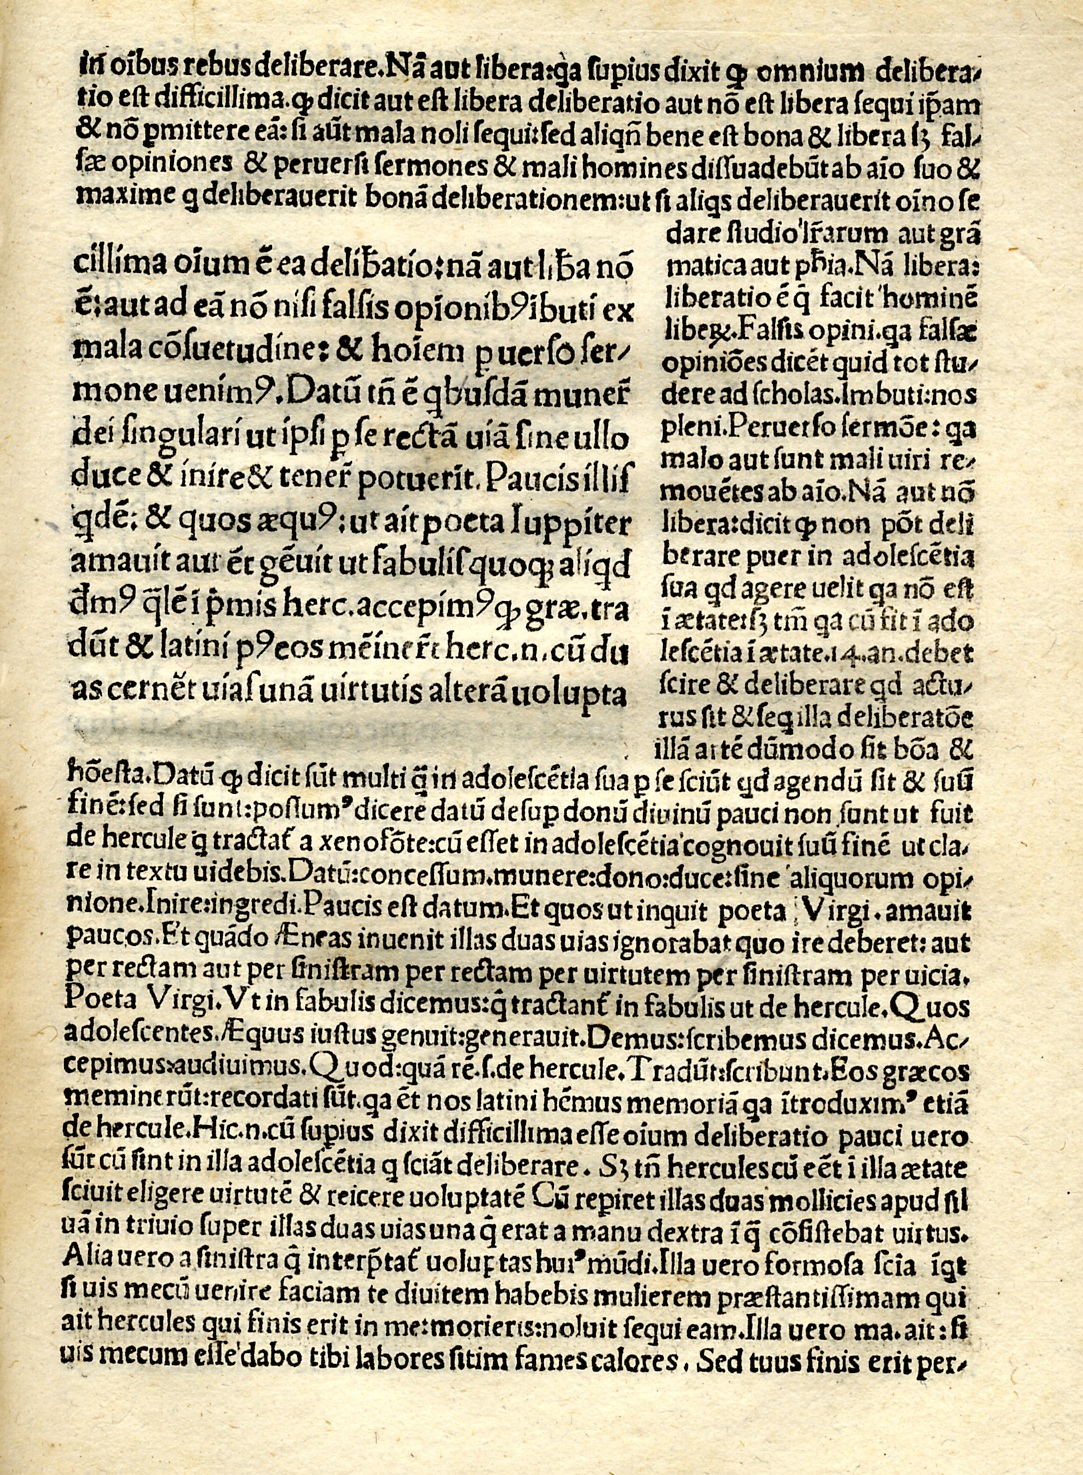 in oībus rebus deliberare.Nā aut libera:qa supius dixit ꝙ omnium delibera-
tio est difficillima.ꝙ dicit aut est libera deliberatio aut nō est libera sequi ip̄am
& nō ꝑmittere eā: si aūt mala noli sequi:sed aliqn̄ bene est bona & libera sꝫ fal-
sæ opiniones & peruersi sermones & mali homines dissuadebūt ab aīo suo &
maxime q deliberauerit bonā deliberationem:ut si aliqs deliberauerit oīno se
dare studio lr̄arum aut grā
matica aut ph̄ia.Nā libera:
liberatio ē q̄ facit hominē
libeꝝ.Falsis opini.qa falsæ
opiniōes dicēt quid tot stu-
dere ad scholas.Imbuti:nos
pleni.Peruerso sermōe: qa
malo aut sunt mali uiri re-
mouētes ab aīo.Nā aut nō
libera:dicit ꝙ non pōt deli
berare puer in adolescētia
sua qd agere uelit qa nō est
ī ætate:sꝫ tm̄ qa cū fit ī ado
lescētia ī ætate.14.an.debet
scire & deliberare qd actu-
rus sit & seq illa deliberatōe
illā autē dūmodo sit bōa &
cillima oīum ē ea delib̄atio:nā aut lib̄a nō
ē:aut ad eā nō nisi falsis opīonibꝰībuti ex
mala cōsuetudine: & hoīem ꝑuerso ser-
mone uenimꝰ.Datū tn̄ ē qbusdā muner̄
dei singulari ut ipsi ꝑ se rectā uiā sine ullo
duce & inire & tener̄ potuerīt.Paucis illis
qdē: & quos æquꝰ:ut ait poeta Iuppiter
amauit aut ēt gēuit ut fabulis quoqꝫ aliqd
đmꝰ q̄lē ī p̄mis herc.accepimꝰꝙ græ.tra
dūt & latini pꝰeos mēiner̄t herc.n.cū du
as cernēt uias unā uirtutis alterā uolupta
hōesta.Datū ꝙ dicit sūt multi q̄ in adolescētia sua ꝑ se sciūt qd agendū sit & suū
finē:sed si sunt:possumꝰ dicere datū desuꝑ donū diuinū pauci non sunt ut fuit
de hercule q̄ tractat̄ a xenofōte:cū esset in adolescētia cognouit suū finē ut cla-
re in textu uidebis.Datū:concessum.munere:dono:duce:sine aliquorum opi-
nione.Inire:ingredi.Paucis est datum.Et quos ut inquit poeta Virgi.amauit
paucos.Et quādo Æneas inuenit illas duas uias ignorabat quo ire deberet: aut
per rectam aut per sinistram per rectam per uirtutem per sinistram per uicia.
Poeta Virgi.Vt in fabulis dicemus:q̄ tractant̄ in fabulis ut de hercule.Quos
adolescentes.Æquus iustus genuit:generauit.Demus:scribemus dicemus.Ac-
cepimus:audiuimus.Quod:quā rē.s.de hercule.Tradūt:scribunt.Eos græcos
meminerūt:recordati sūt.qa ēt nos latini hēmus memoriā qa ītroduximꝰ etiā
de hercule.Hic.n.cū supius dixit difficillima esse oīum deliberatio pauci uero
sūt cū sint in illa adolescētia q sciāt deliberare. Sꝫ tn̄ hercules cū eēt ī illa ætate
sciuit eligere uirtutē & reicere uoluptatē Cū repiret illas duas mollicies apud sil
uā in triuio super illas duas uias una q̄ erat a manu dextra ī q̄ cōsistebat uirtus.
Alia uero a sinistra q̄ interp̄tat̄ uoluptas huiꝰ mūdi.Illa uero formosa scīa īqt
si uis mecū uenire faciam te diuitem habebis mulierem præstantissimam qui
ait hercules qui finis erit in me:morieris:noluit sequi eam.Illa uero ma.ait: si
uis mecum esse dabo tibi labores sitim fames calores. Sed tuus finis erit per-